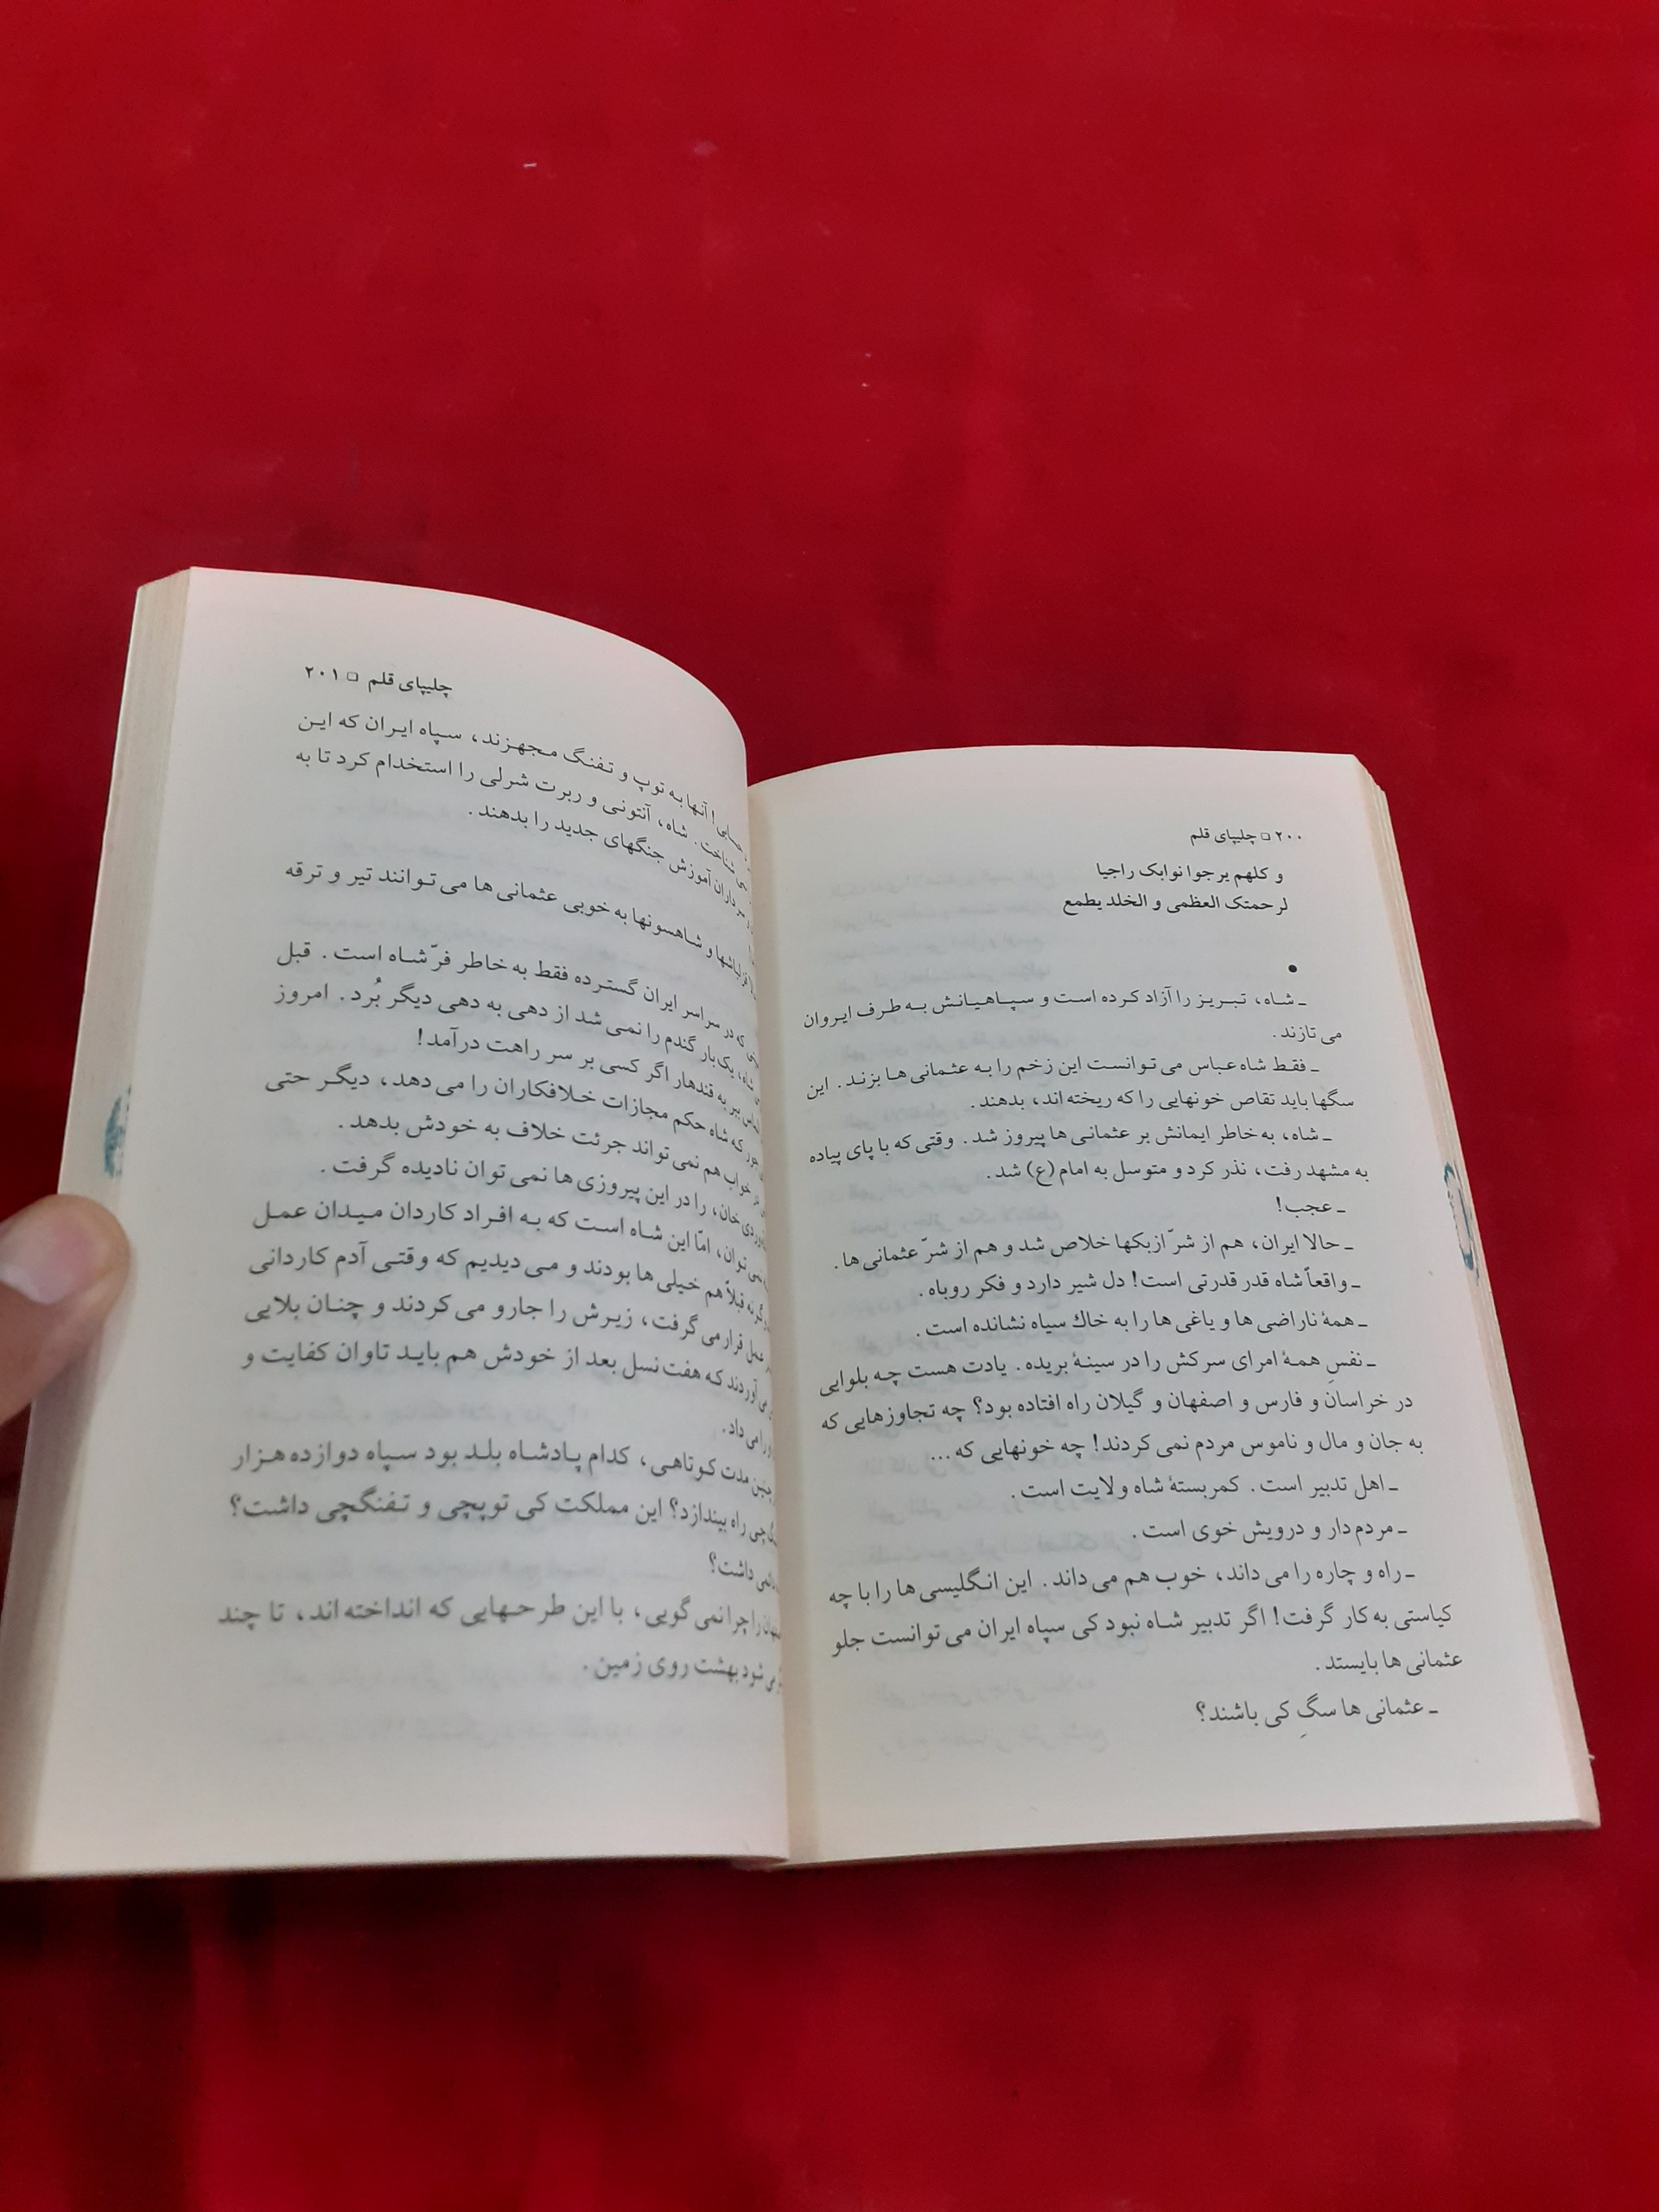 ۲۰۰ □ چلیپای قلم
و کلهم یرجوا نوابک راجیا
لرحمتک العظمی و الخلد یطمع
•
ـ شاه، تبریز را آزاد کرده است و سپاهیانش به طرف ایروان
می تازند.
ـ فقط شاه عباس می توانست این زخم را به عثمانی ها بزند. این
سگها باید تقاص خونهایی را که ریخته اند، بدهند.
ـ شاه، به خاطر ایمانش بر عثمانی ها پیروز شد. وقتی که با پای پیاده
به مشهد رفت، نذر کرد و متوسل به امام (ع) شد.
ـ عجب!
ـ حالا ایران، هم از شرّ ازبکها خلاص شد و هم از شرّ عثمانی ها.
ـ واقعاً شاه قدر قدرتی است! دل شیر دارد و فکر روباه.
ـ همۀ ناراضی ها و یاغی ها را به خاك سیاه نشانده است.
ـ نفسِ همۀ امرای سرکش را در سینۀ بریده. یادت هست چه بلوایی
در خراسان و فارس و اصفهان و گیلان راه افتاده بود؟ چه تجاوزهایی که
به جان و مال و ناموس مردم نمی کردند! چه خونهایی که...
ـ اهل تدبیر است. کمربستۀ شاه ولایت است.
ـ مردم دار و درویش خوی است.
ـ راه و چاره را می داند، خوب هم می داند. این انگلیسی ها را با چه
کیاستی به کار گرفت! اگر تدبیر شاه نبود کی سپاه ایران می توانست جلو
عثمانی ها بایستد.
ـ عثمانی ها سگِ کی باشند؟
چلیپای قلم □ ۲۰۱
آنها به توپ و تفنگ مجهزند، سپاه ایران که این
شناخت. شاه، آنتونی و ربرت شرلی را استخدام کرد تا به
سرداران آموزش جنگهای جدید را بدهند.
قزلباشها و شاهسونها به خوبی عثمانی ها می توانند تیر و ترقه
که در سراسر ایران گسترده فقط به خاطر فرّ شاه است. قبل
شاه، یک بار گندم را نمی شد از دهی به دهی دیگر بُرد. امروز
ببر به قندهار اگر کسی بر سر راهت درآمد!
که شاه حکم مجازات خلافکاران را می دهد، دیگر حتی
خواب هم نمی تواند جرئت خلاف به خودش بدهد.
خان، را در این پیروزی ها نمی توان نادیده گرفت.
توان، امّا این شاه است که به افراد کاردان میدان عمل
قبلاً هم خیلی ها بودند و می دیدیم که وقتی آدم کاردانی
عمل قرار می گرفت، زیرش را جارو می کردند و چنان بلایی
می آوردند که هفت نسل بعد از خودش هم باید تاوان کفایت و
را می داد.
مدت کوتاهی، کدام پادشاه بلد بود سپاه دوازده هزار
چی راه بیندازد؟ این مملکت کی توپچی و تفنگچی داشت؟
داشت؟
را چرا نمی گویی، با این طرحهایی که انداخته اند، تا چند
می شود بهشت روی زمین.